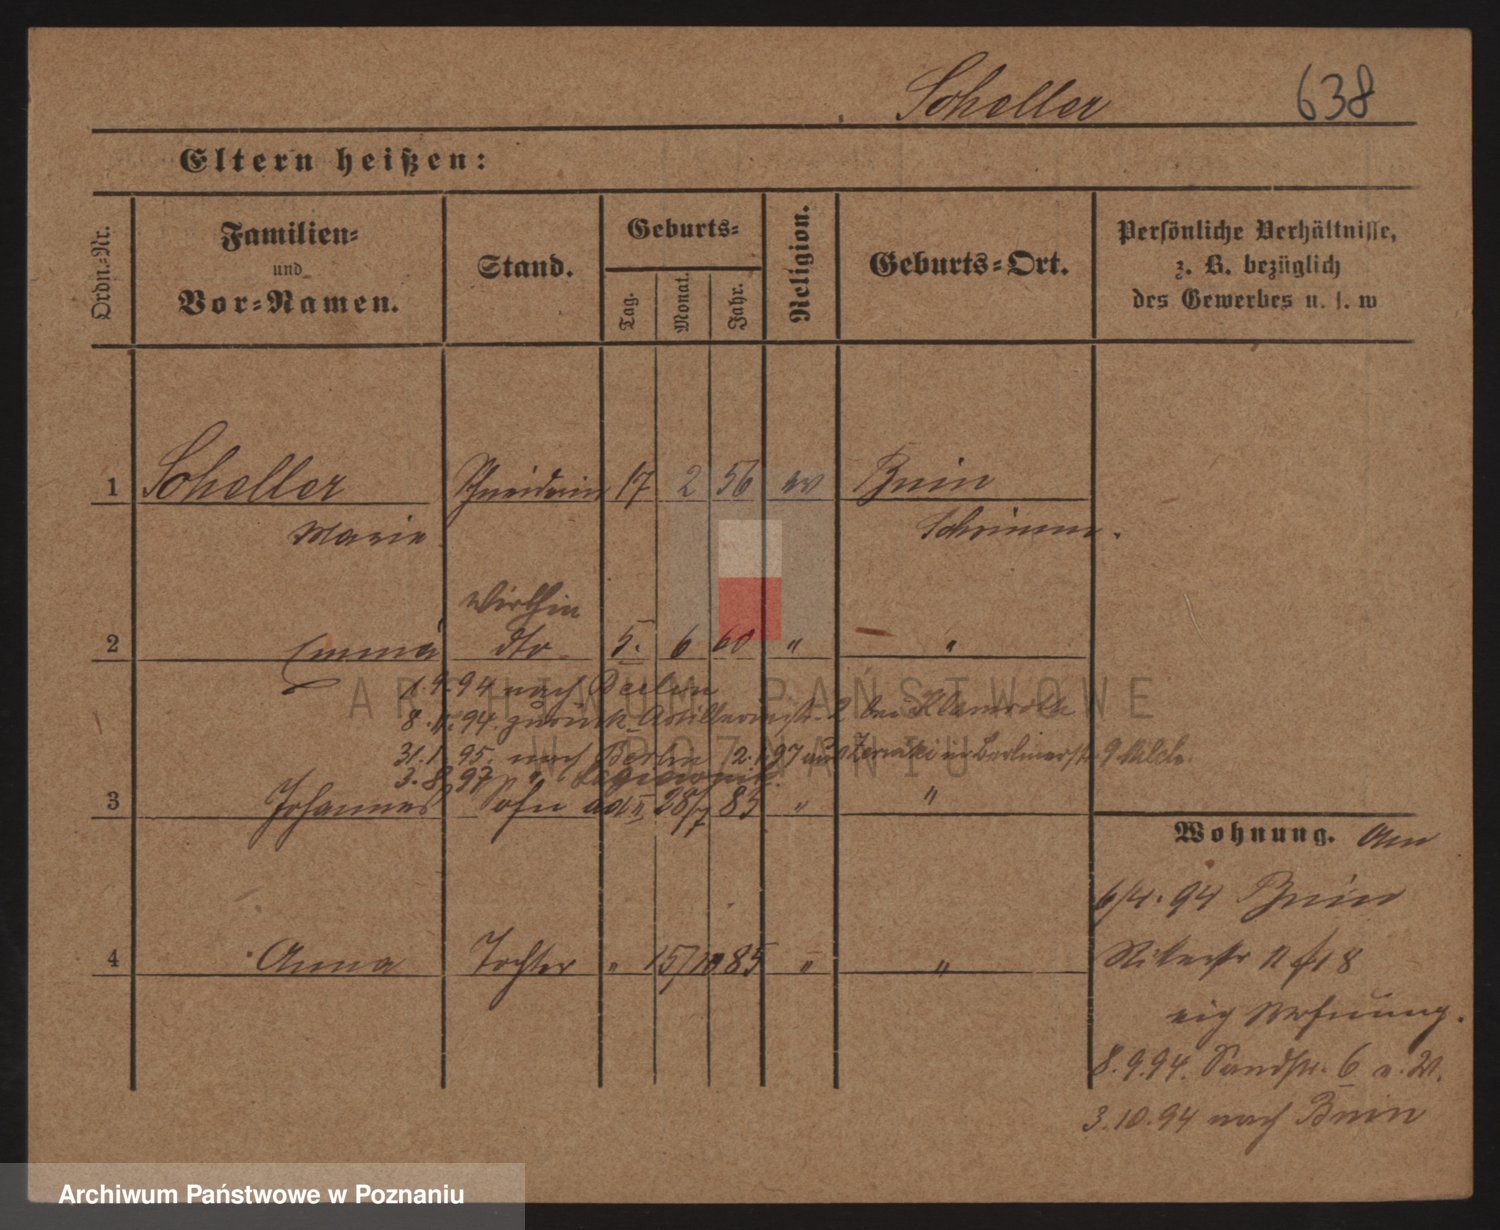 Scheller 638
Eltern heißen:
Ordn.-Nr.
Familien-
und
Vor-Namen.
Stand.
Geburts-
Tag.
Monat.
Jahr.
Religion.
Geburts-Ort.
Persönliche Verhältnisse,
z. B. bezüglich
des Gewerbes u. s. w
1 Scheller Schneiderin 17 2 56 ev Bnin
Marie Schrimm.
Wirthin
2 Emma dto 5. 6 60 " "
1.4.94 nach Berlin
8.4.94. zurück 2 bei
31.1.95. nach Berlin 2.1.97 aus Berlinerstr. 9
3.8.97 "
3 Johannes Sohn ad II 28/7 83 " "
4 Anna Tochter " 15/10 85 " "
Wohnung. Am
6/4.94 Bnin
18
eig Wohnung.
8.9.94. Sandstr. 6 b. W.
3.10.94 nach Bnin
ARCHIWUM PAŃSTWOWE
W POZNANIU
Archiwum Państwowe w Poznaniu